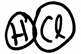 H Cl